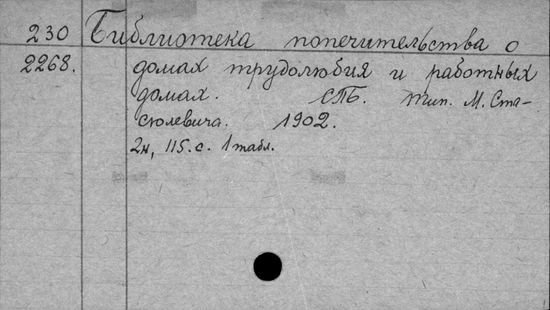 230 Библиотека попечительства о
2268. домах трудолюбия и работных
домах. СПБ. Тип. М. Ста-
сюлевича. 1902.
2н, 115.с. 1 табл.